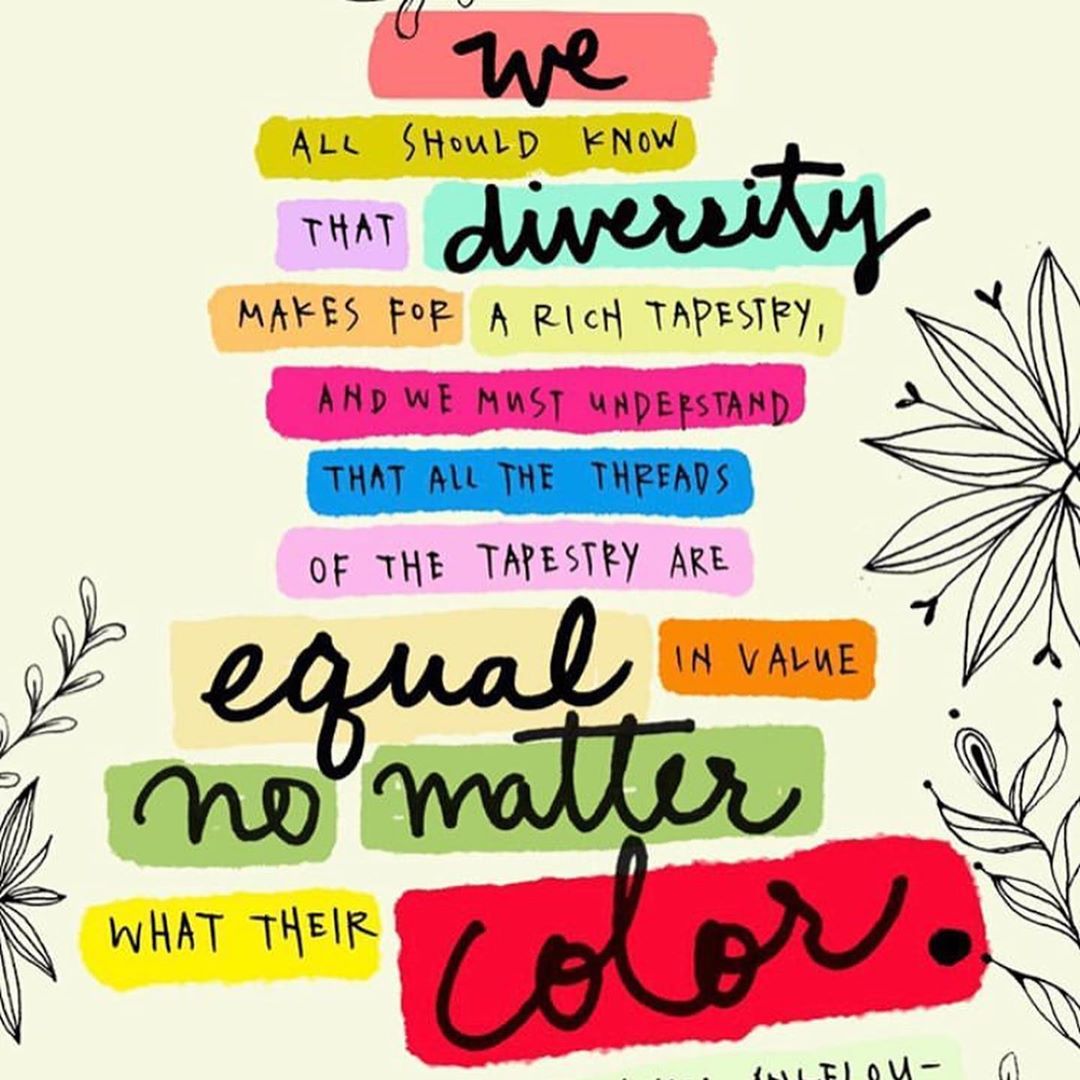 we
ALL SHOULD KNOW
THAT diversity
MAKES FOR A RICH TAPESTRY,
AND WE MUST UNDERSTAND
THAT ALL THE THREADS
OF THE TAPESTRY ARE
equal IN VALUE
no matter
WHAT THEIR color.